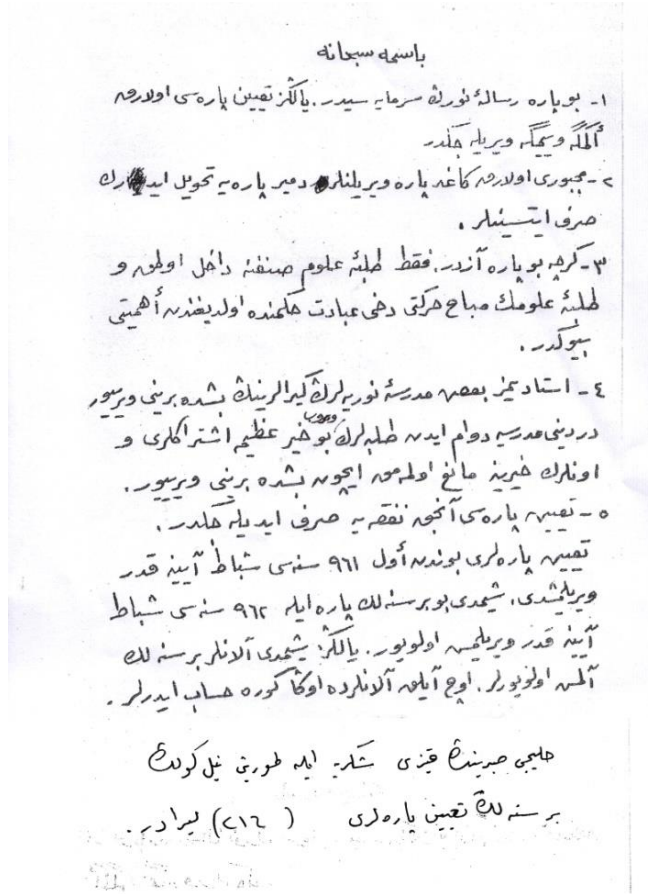 باسمه سبحانه
١- بو پاره رسالۀ نورڭ سرمايه سيدر. يالڭز تعيين پاره سى اولارق
أكمگه و ييمگه ويريله جكدر
٢- مجبورى اولارق كاغد پاره ويريلنلر دمير پاره يه تحويل ايده رك
صرف ايتسينلر .
٣- گرچه بو پاره آزدر. فقط طلبۀ علوم صنفنه داخل اولمق و
طلبۀ علومك مباح حركتى دخى عبادت حكمنده اولديغندن أهميتى
بيوكدر .
٤- استاديمز بعض مدرسۀ نوريه لرڭ كيرالرينڭ بشده برينى ويرييور
دردينى مدرسيه دوام ايدن طلبه لرڭ ويروب بو خير عظيم اشتراكلرى و
اونلرڭ خيرينه مانع اولمامق ايچون بشده برينى ويرييور .
٥- تعيين پاره سى آنجق نفقه يه صرف ايديله جكدر .
تعيين پاره لرى بوندن أول ٩٦١ سنه سى شباط آيينه قدر
ويريلمشدى. شيمدى بو بر سنه لك پاره ايله ٩٦٢ سنه سى شباط
آيينه قدر ويريلمش اولويور. يالڭز شيمدى آلانلر بر سنه لك
آلمش اولويورلر. اوچ آيلق آلانلرده اوڭا گوره حساب ايدرلر .
خليجى صبرينڭ قيزى شكريه ايله طورينى نيل گولڭ
بر سنه لڭ تعيين پاره لرى (٢١٦) ليرادر.